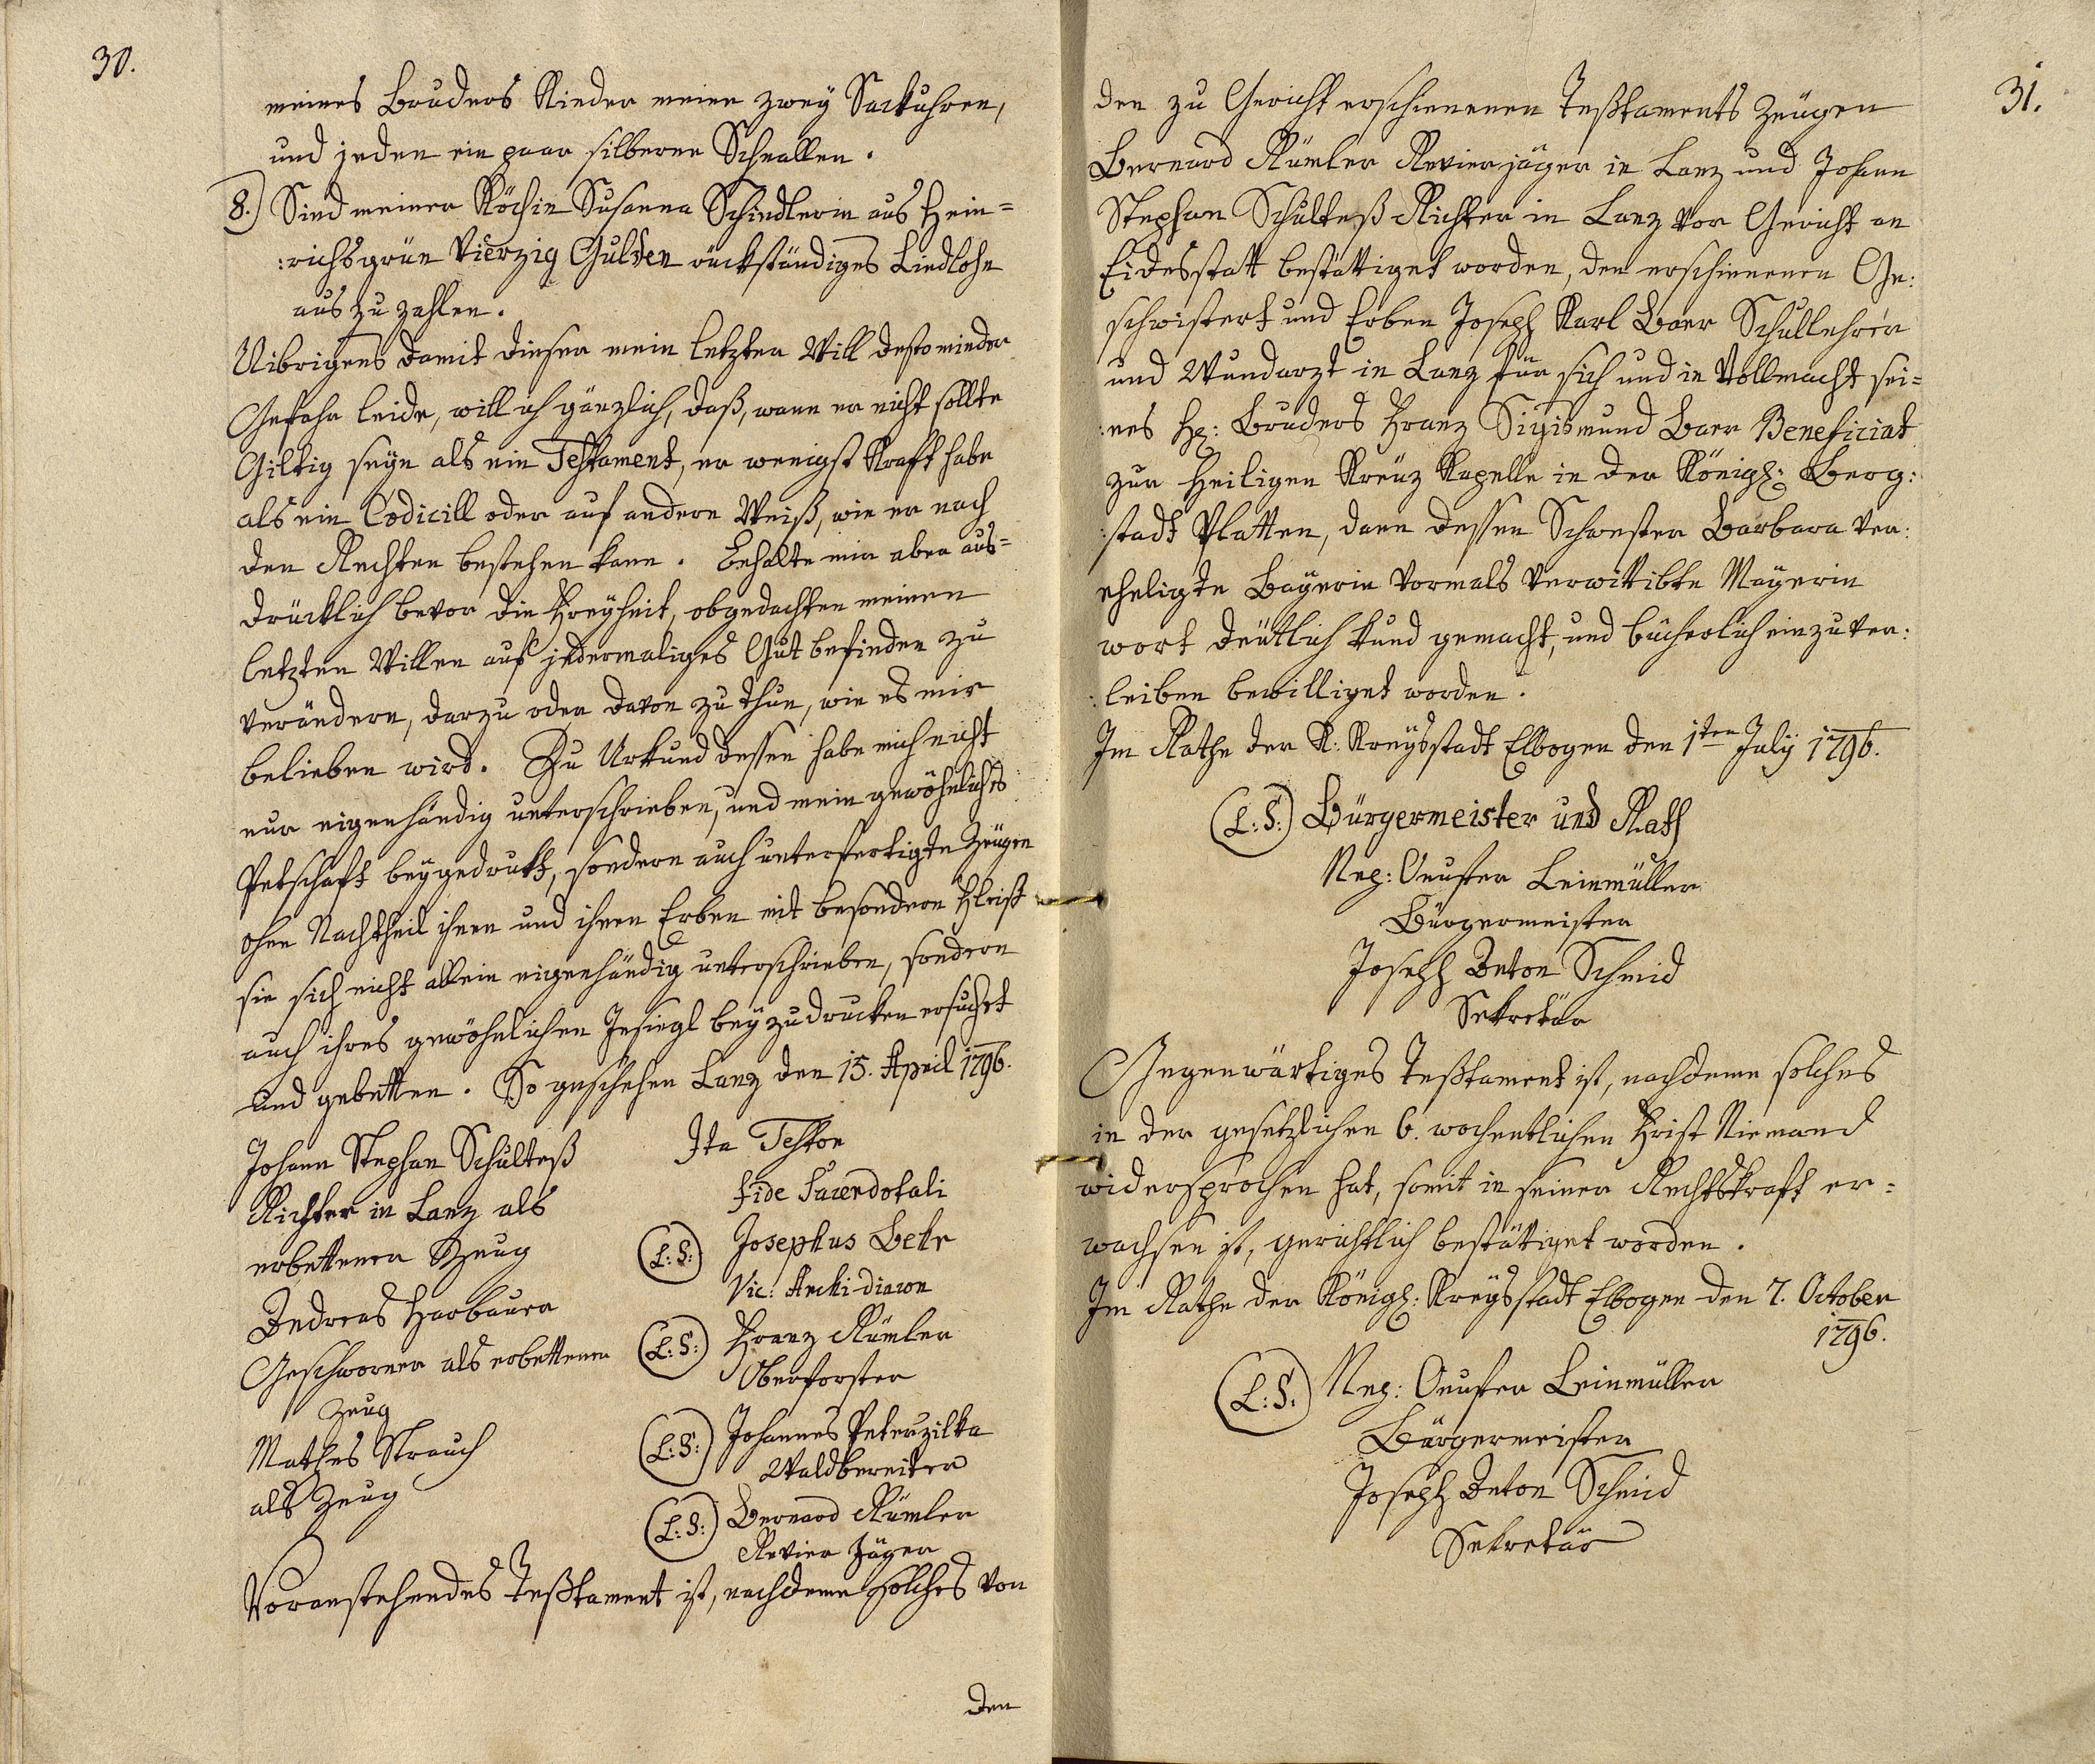 30.
meines Bruders Kinder meine zwey Sackuhren,
und jeden ein paar silberne Schnallen.
8.) Sind meiner Köchin Susanna Schindlerin aus Hein=
:richsgrün Vierzig Gulden rückständiges Liedlohn
auszuzahlen.
Uibrigens damit dieser mein letzter Will desto minder
Gefahr leide, will ich gänzlich, daß, wann er nicht sollte
Giltig seyn als ein Testament, er wenigst Kraft habe
als ein Codicill oder auf andere Weiß, wie er nach
den Rechten bestehen kann. Behalte mir aber aus=
drücklich bevor die Freyheit, obgedachten meinen
letzten Willen auf jedermaliges Gutbefinden zu
verändern, darzu oder davon zu thun, wie es mir
belieben wird. Zu Urkund dessen habe mich nicht
nur eigenhändig unterschrieben, und mein gewöhnliches
Petschaft beygedrukt, sondern auch unterfertigte Zeügen
ohne Nachtheil ihnen und ihren Erben mit besondern Fleiß
sie sich nicht allein eigenhändig unterschrieben, sondern
auch ihres gewöhnlichen Insiegl beyzudrucken ersuchet
und gebetten. So geschehen Lanz den 15. April 1796.
Johann Stephan Schulteß
Richter in Lanz als
erbettener Zeug
Andreas Harbauer
Geschworner als erbettener
Zeug
Mathes Strauch
als Zeug
Ita Testor
fide Sacerdotali
(L:S:) Josephus Behr
Vic: Archi-diacon
(L:S:) Franz Rümler
Oberforster
(L:S:) Johannes Peterzilka
Waldbereiter
(L:S:) Bernard Rümler
Revier Jäger
Voranstehendes Teßtament ist, nachdeme solches von
den
31.
den zu Gericht erschienenen Teßtaments Zeügen
Bernard Rümler Revierjäger in Lanz und Johann
Stephan Schulteß Richter in Lanz vor Gericht an
Eidesstatt bestättiget worden, den erschienenen Ge:
schwistert und Erben Joseph Karl Baer Schullehrer
und Wundarzt in Lanz für sich und in Vollmacht sei=
:nes H: Bruders Franz Sigismund Baer Beneficiat
zur Heiligen Kreuz Kapelle in der Königl: Berg:
:stadt Platten, dann dessen Schwester Barbara ver:
eheligte Bayerin vormals verwittibte Mayerin
wort deütlich kund gemacht, und bücherlich einzuver:
:leiben bewilliget worden.
Im Rathe der K: Kreysstadt Elbogen den 1ten July 1796.
(L:S:) Bürgermeister und Rath
Leinmüller
Bürgermeister
Joseph Anton Schmid
Sekretär
Gegenwärtiges Teßtament ist, nachdeme solches
in der gesetzlichen 6. wochentlichen Frist Niemand
widersprochen hat, somit in seiner Rechtskraft er=
wachsen ist, gerichtlich bestättiget worden.
Im Rathe der Königl: Kreysstadt Elbogen den 7. October
1796.
(L:S:) Leinmüller
Bürgermeister
Joseph Anton Schmid
Sekretär